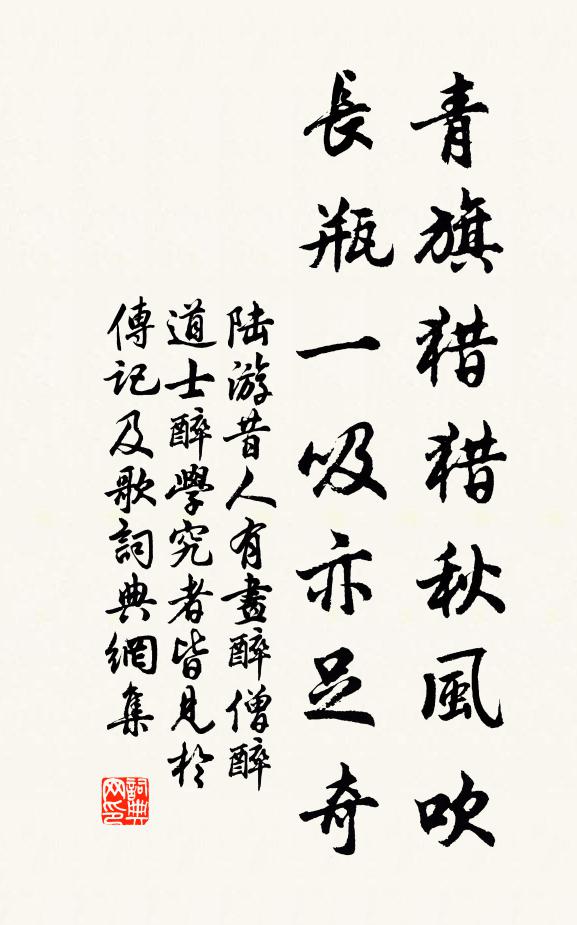 青旗猎猎秋風吹
長瓶一吸亦足奇
陆游昔人有畫醉僧醉
道士醉學究者皆見於
傳記及歌詞典網集
詞典
网印